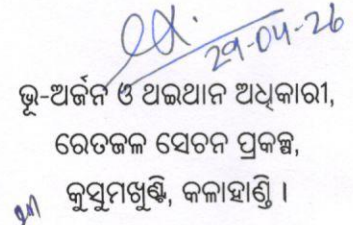 29-04-26
ଭୂ-ଅର୍ଜନ ଓ ଥଇଥାନ ଅଧିକାରୀ,
ରେତଜଳ ସେଚନ ପ୍ରକଳ୍ପ,
କୁସୁମଖୁଣ୍ଟି, କଳାହାଣ୍ଡି ।